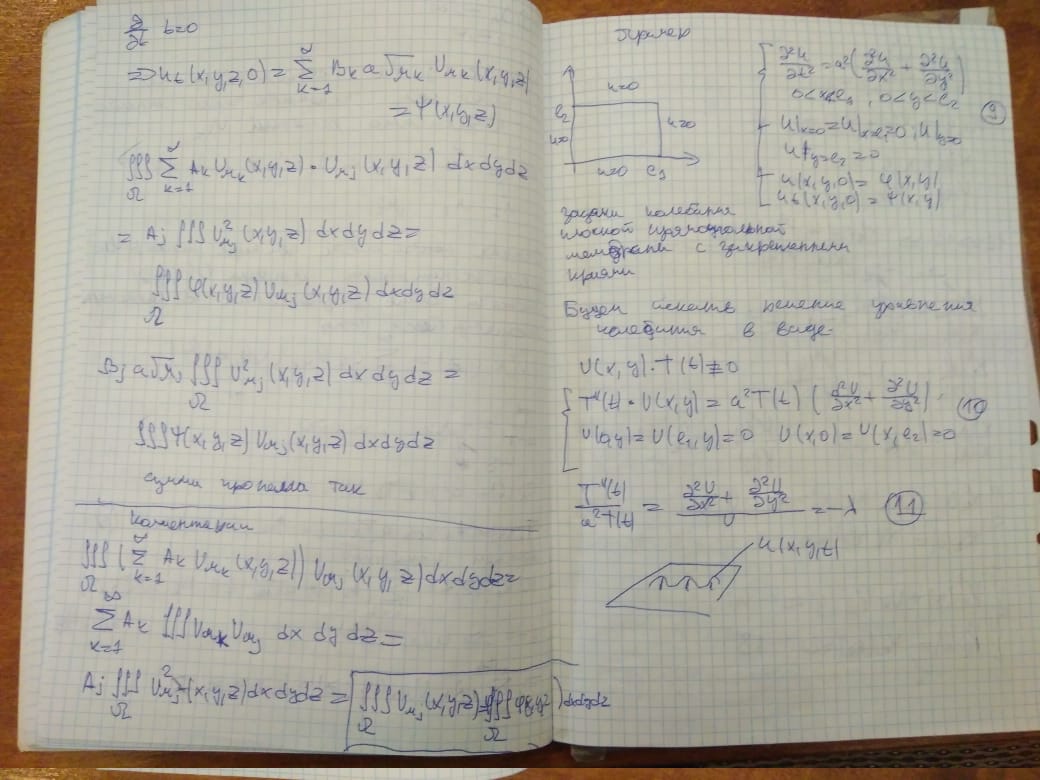 ∂/∂t t=0
=> u_t(x,y,z,0) = ∑_{k=1}^∞ B_k a √μ_k U_{μk}(x,y,z)
= Ψ(x,y,z)
∭_Ω ∑_{k=1}^∞ A_k U_{μk}(x,y,z) · U_{μj}(x,y,z) dxdydz
= A_j ∭_Ω U²_{μj}(x,y,z) dxdydz =
∭_Ω φ(x,y,z) U_{μj}(x,y,z) dxdydz
B_j a √μ_j ∭_Ω U²_{μj}(x,y,z) dxdydz =
∭Ψ(x,y,z) U_{μj}(x,y,z) dxdydz
сумма пропала так
коментации
∭_Ω (∑_{k=1}^∞ A_k U_{μk}(x,y,z)) U_{μj}(x,y,z) dxdydz =
∑_{k=1}^∞ A_k ∭ U_{μk} U_{μj} dx dy dz =
A_j ∭_Ω U²_{μj}(x,y,z) dxdydz = ∭_Ω U_{μj}(x,y,z) ∭_Ω dxdydz
Пример
u=0
e₂
u=0
u=0
u=0 e₁
∂²u/∂t² = a²(∂²u/∂x² + ∂²u/∂y²)
0<x<e₁, 0<y<e₂
9
u|_{x=0} = u|_{x=e₁} = 0, u|_{y=0}
u|_{y=e₂} = 0
u(x,y,0) = φ(x,y)
u_t(x,y,0) = Ψ(x,y)
задачи колебания
плоской прямоугольной
мембрани с закрепленными
краями
Будем искать решение уравнения
колебания в виде:
U(x,y)·T(t) ≢ 0
T''(t)·U(x,y) = a²T(t) (∂²U/∂x² + ∂²U/∂y²)
10
U(0,y) = U(e₁,y) = 0 U(x,0) = U(x,e₂) = 0
T''(t)/a²T(t) = (∂²U/∂x² + ∂²U/∂y²)/U = -λ 11
u(x,y,t)